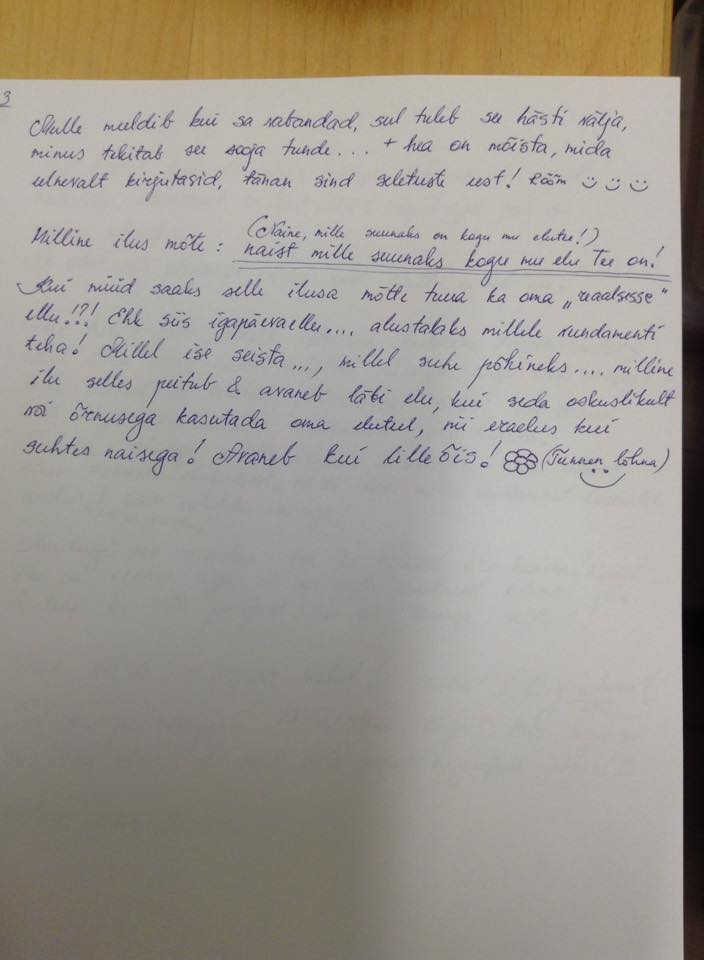 3
Mulle meeldib kui sa vabandad, sul tuleb see hästi välja,
minus tekitab see sooja tunde... + hea on mõista, mida
eelnevalt kirjutasid, tänan sind seletuste eest! Rõõm
(Naine, mille suunaks on kogu mu elutee!)
Milline ilus mõte: naist mille suunaks kogu mu elu Tee on!
Kui nüüd saaks selle ilusa mõtte tuua ka oma „reaalsesse"
ellu!?! Ehk siis igapäevaellu.... alustalaks millele vundamenti
teha! Millel ise seista..., millel suhe põhineks.... milline
ilu selles peitub & avaneb läbi elu, kui seda oskuslikult
või õrnusega kasutada oma eluteel, nii eraelus kui
suhtes naisega! Avaneb kui lille õis! (Tunnen lõhna)